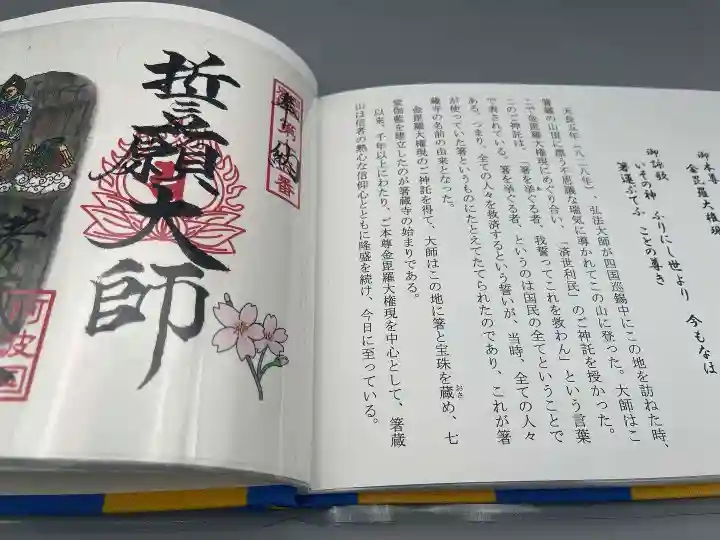 御本尊
金毘羅大権現
御詠歌
いその神 ふりにし世より 今もなほ
箸運ぶてふ ことの尊き
天長五年（八二八年）、弘法大師が四国巡錫中にこの地を訪ねた時、
箸蔵の山間に漂う不思議な瑞気に導かれてこの山に登った。大師はこ
こで金毘羅大権現にめぐり合い、「済世利民」のご神託を授かった。
このご神託は、「箸を挙ぐる者、我誓ってこれを救わん」という言葉
で表されている。箸を挙ぐる者、というのは国民の全てということで
ある。つまり、全ての人々を救済するという誓いが、当時、全ての人々
が使っていた箸というものにたとえてたてられたのであり、これが箸
蔵寺の名前の由来となった。
金毘羅大権現のご神託を得て、大師はこの地に箸と宝珠を蔵め、七
おさ
堂伽藍を建立したのが箸蔵寺の始まりである。
以来、千年以上にわたり、ご本尊金毘羅大権現を中心として、箸蔵
山は信者の熱心な信仰心とともに隆盛を続け、今日に至っている。
奉納
番
誓願大師
阿波国